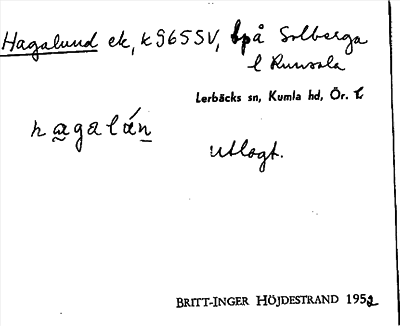 Hagalund ek, k 965 SV, på Solberga
l Runsala
Lerbäcks sn, Kumla hd, Ör. l.
hagalán
utlagt.
BRITT-INGER HÖJDESTRAND 1952